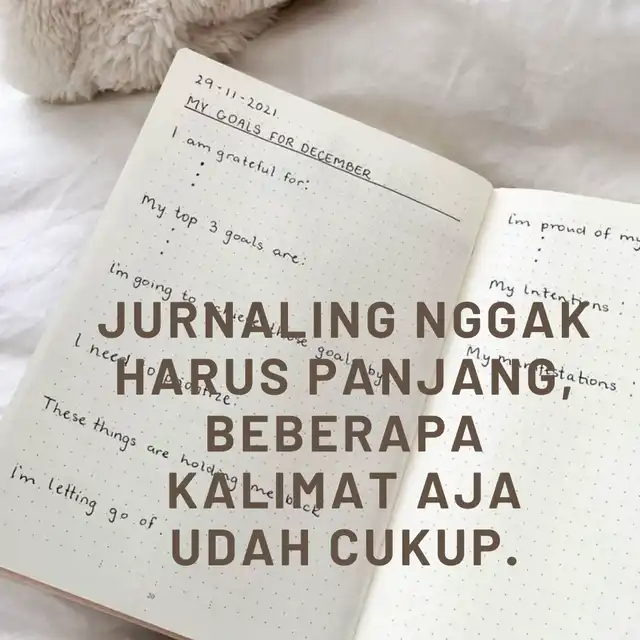 29-11-2021
MY GOALS FOR DECEMBER
I am grateful for:
My top 3 goals are:
i'm going to achieve these goals by:
I need to prioritize:
These things are holding me back
i'm letting go of
i'm proud of my
My Intentions :
My manifestations :
JURNALING NGGAK
HARUS PANJANG,
BEBERAPA
KALIMAT AJA
UDAH CUKUP.